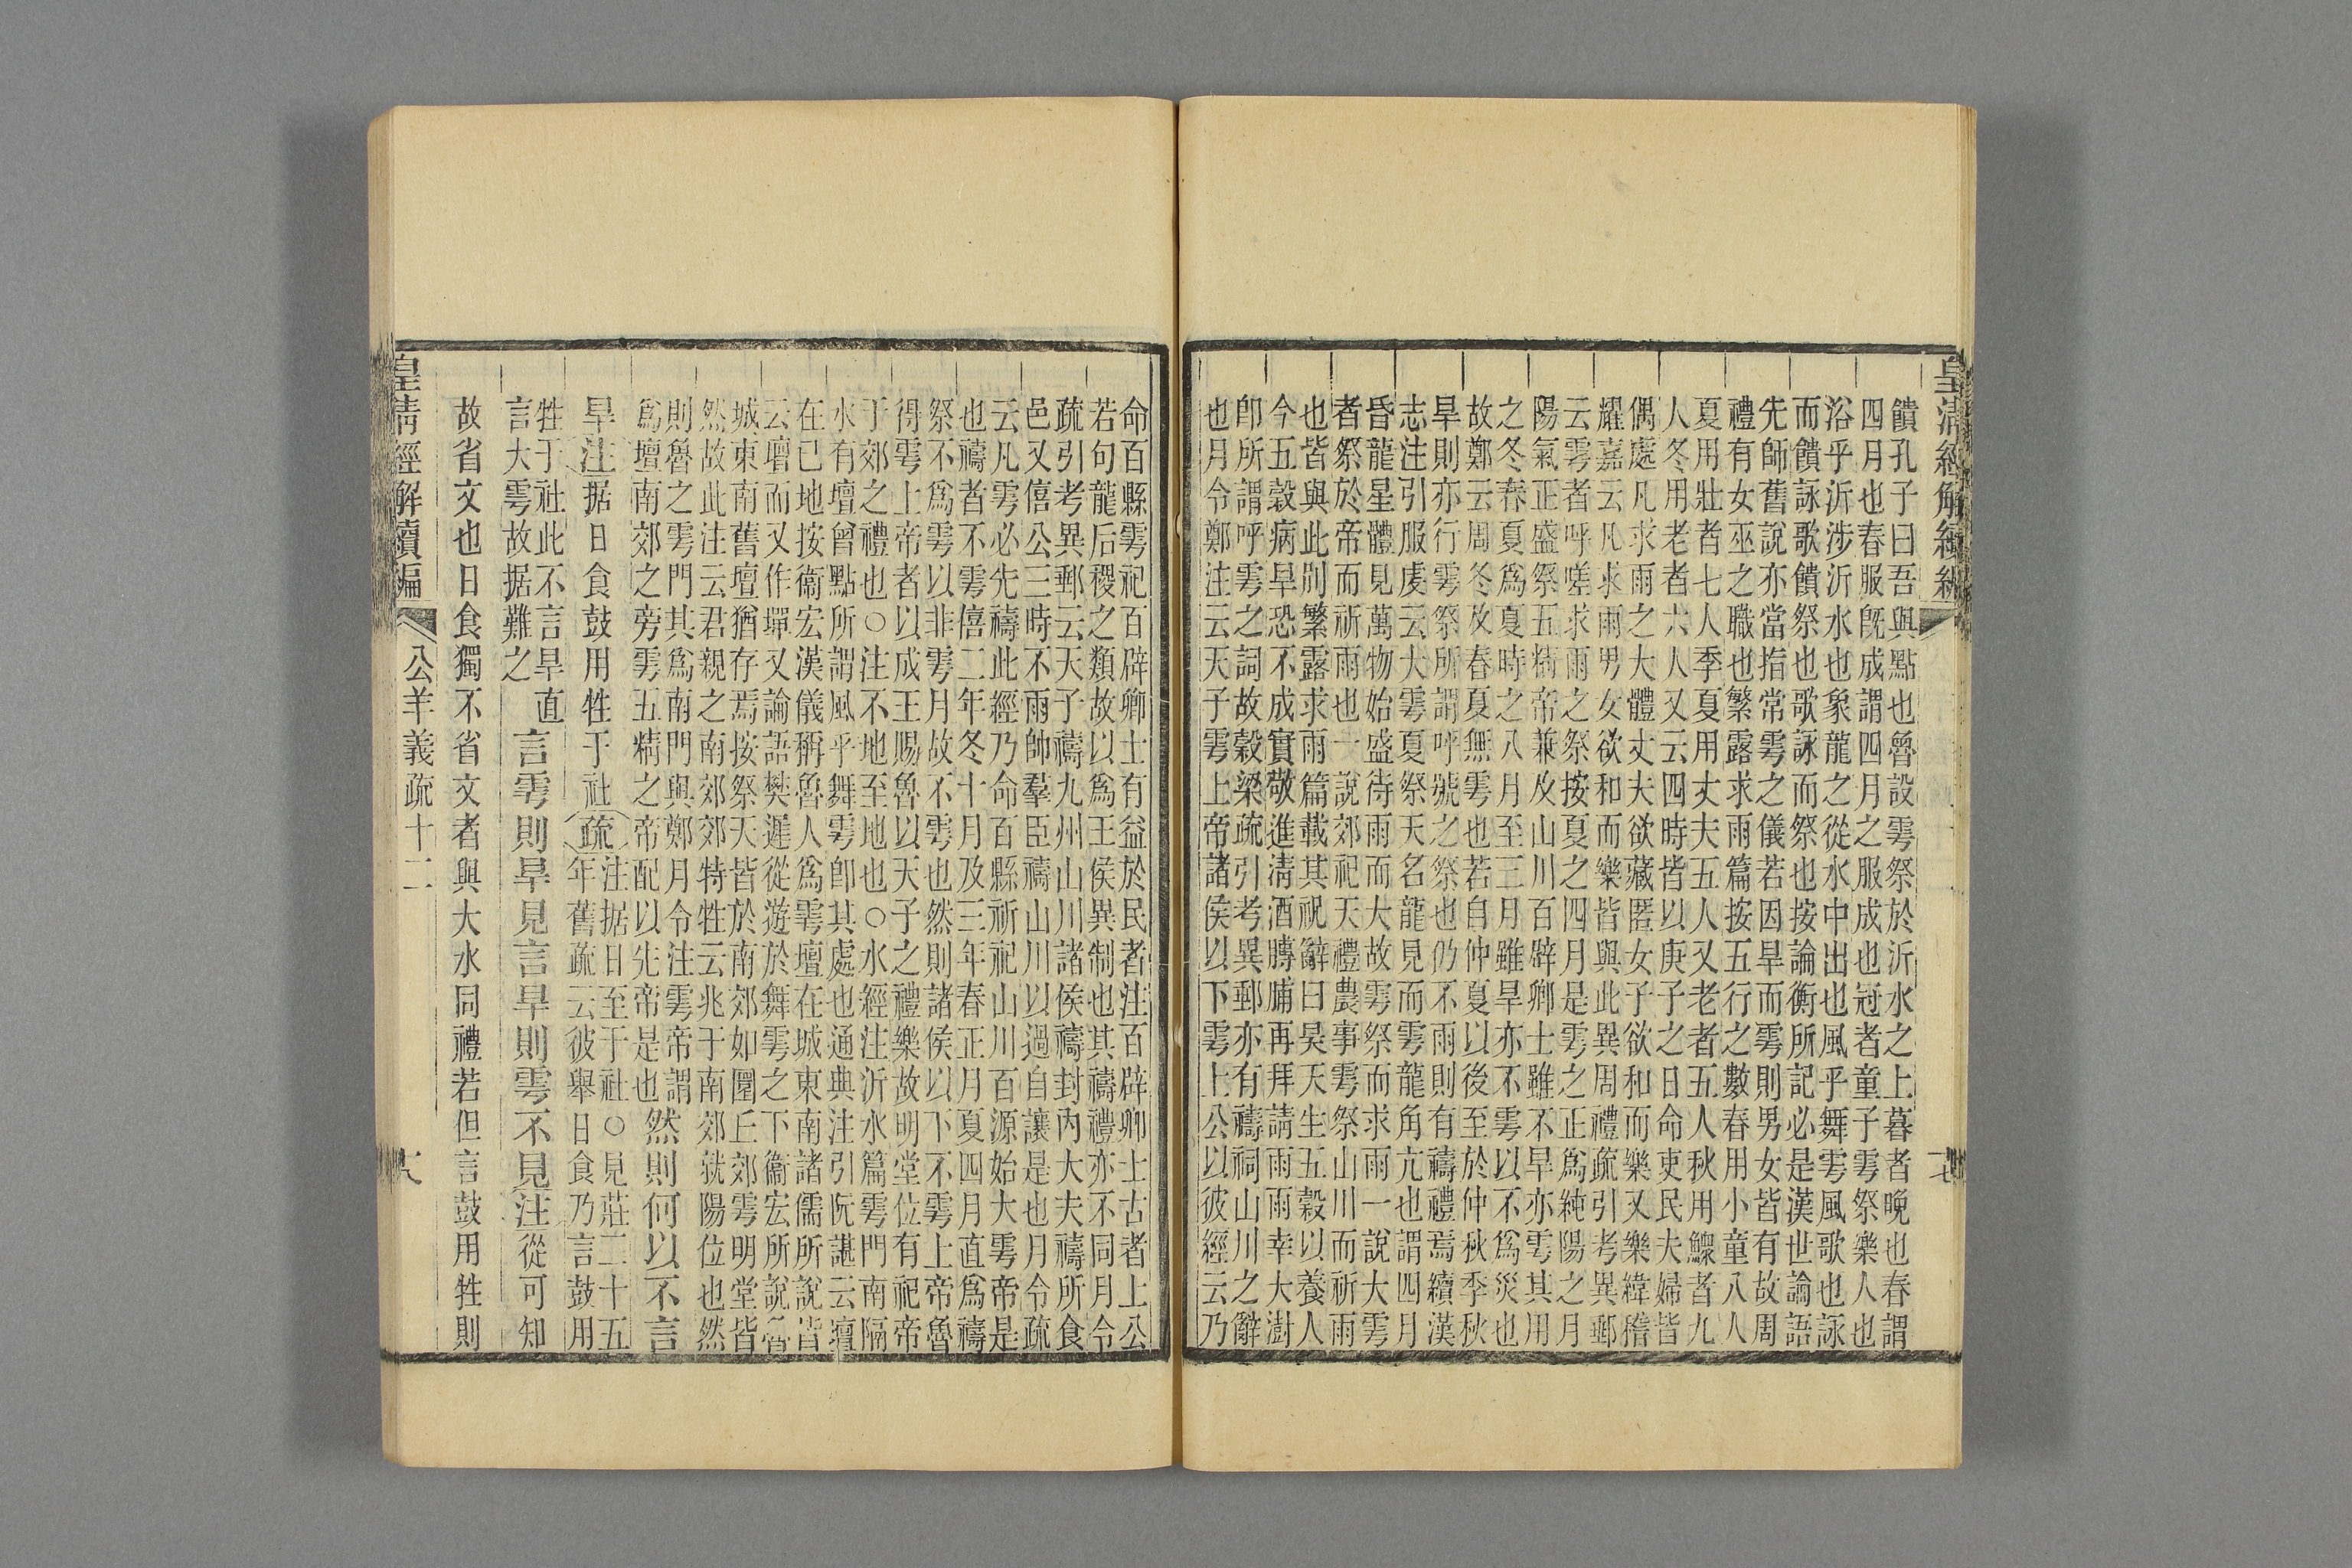 皇清經解續編
饋孔子曰吾與點也魯設雩祭於沂水之上暮者晚也春謂
四月也春服旣成謂四月之服成也冠者童子雩祭樂人也
浴乎沂涉沂水也象龍之從水中出也風乎舞雩風歌也詠
而饋詠歌饋祭也歌詠而祭也按論衡所記必是漢世論語
先師舊說亦當指常雩之儀若因旱而雩則男女皆有故周
禮有女巫之職也繁露求雨篇按五行之數春用小童八人
夏用壯者七人季夏用丈夫五人又老者五人秋用鰥者九
人冬用老者六人又云四時皆以庚子之日命吏民夫婦皆
偶處凡求雨之大體丈夫欲藏匿女子欲和而樂又樂緯稽
耀嘉云凡求雨男女欲和而樂皆與此異周禮疏引考異郵
云雩者呼嗟求雨之祭按夏之四月是雩之正爲純陽之月
陽氣正盛祭五精帝兼及山川百辟卿士雖不旱亦雩其用
之冬春夏爲夏時之八月至三月雖旱亦不雩以不爲災也
故鄭云周冬及春夏無雩也若自仲夏以後至於仲秋季秋
旱則亦行雩祭所謂呼號之祭也仍不雨則有禱禮焉續漢
志注引服虔云大雩夏祭天名龍見而雩龍角亢也謂四月
昏龍星體見萬物始盛待雨而大故雩祭而求雨一說大雩
者祭於帝而祈雨也一說郊祀天禮農事雩祭山川而祈雨
也皆與此別繁露求雨篇載其祝辭曰昊天生五穀以養人
今五穀病旱恐不成實敬進清酒膊脯再拜請雨雨幸大澍
卽所謂呼雩之詞故穀梁疏引考異郵亦有禱祠山川之辭
也月令鄭注云天子雩上帝諸侯以下雩上公以彼經云乃
命百縣雩祀百辟卿士有益於民者注百辟卿士古者上公
若句龍后稷之類故以爲王侯異制也其禱禮亦不同月令
疏引考異郵云天子禱九州山川諸侯禱封內大夫禱所食
邑又僖公三時不雨帥羣臣禱山川以過自讓是也月令疏
云凡雩必先禱此經乃命百縣祈祀山川百源始大雩帝是
也禱者不雩僖二年冬十月及三年春正月夏四月直爲禱
祭不爲雩以非雩月故不雩也然則諸侯以下不雩上帝魯
得雩上帝者以成王賜魯以天子之禮樂故明堂位有祀帝
于郊之禮也○注不地至地也○水經注沂水篇雩門南隔
水有壇曾點所謂風乎舞雩卽其處也通典注引阮諶云壇
在巳地按衞宏漢儀稱魯人爲雩壇在城東南諸儒所說皆
云壇而又作墠又論語樊遲從遊於舞雩之下衞宏所說魯
城東南舊壇猶存焉按祭天皆於南郊如圜丘郊雩明堂皆
然故此注云君親之南郊郊特牲云兆于南郊就陽位也然
則魯之雩門其爲南門與鄭月令注雩帝謂
爲壇南郊之旁雩五精之帝配以先帝是也然則何以不言
旱注据日食鼓用牲于社疏注据日至于社○見莊二十五
年舊疏云彼舉日食乃言鼓用
牲于社此不言旱直
言大雩故据難之言雩則旱見言旱則雩不見注從可知
故省文也日食獨不省文者與大水同禮若但言鼓用牲則
皇清經解續編 公羊義疏十二